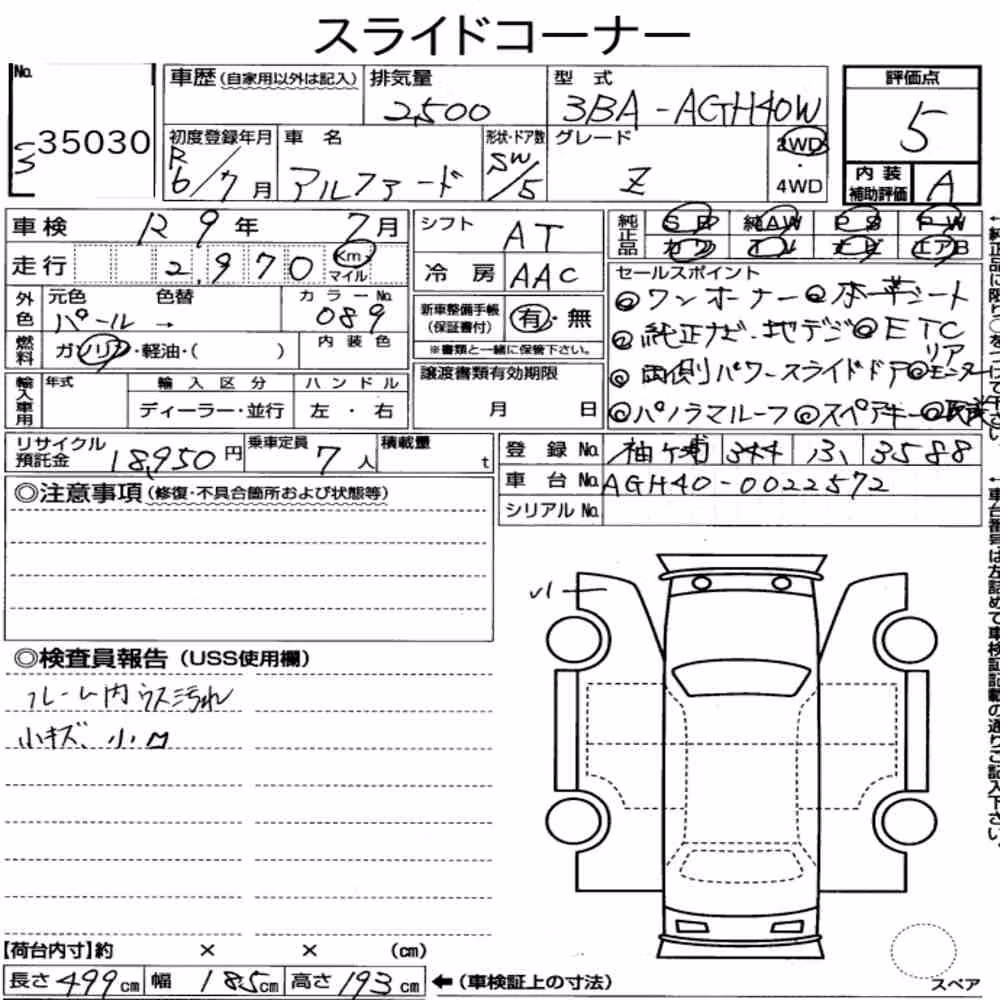 スライドコーナー
No.
35030
車歴(自家用以外は記入)
排気量
2,500
型式
3BA-AGH40W
評価点
5
初度登録年月
R6/7月
車名
アルファード
形状・ドア数
SW/5
グレード
Z
2WD
・
4WD
内装
補助評価
A
車検 R9年 7月
シフト AT
純正品
SR 純AW PS PW
カワ ナビ エアB
走行 2,970 Km マイル
冷房 AAC
セールスポイント
◎ワンオーナー ◎本革シート
◎純正ナビ.地デジ ◎ETC
◎両側パワースライドドア ◎リアモニター
◎パノラマルーフ ◎スペアキー ◎取説
外色
元色 色替 カラーNo.
パール → 089
新車整備手帳
(保証書付)
有・無
※書類と一緒に保管下さい。
燃料
ガソリン・軽油・( )
内装色
譲渡書類有効期限
月 日
輸入車用
年式 輸入区分 ハンドル
ディーラー・並行 左・右
リサイクル
預託金 18,950円
乗車定員 7人
積載量 t
登録No. 袖ヶ浦 344 3588
車台No. AGH40-0022572
シリアルNo.
◎注意事項(修復・不具合箇所および状態等)
◎検査員報告(USS使用欄)
フレーム内ウス汚れ
小キズ、小M
【荷台内寸】約 × × (cm)
長さ499cm 幅185cm 高さ193cm ←(車検証上の寸法)
スペア
←純正品に限り○をつけて下さい。
←車台番号は左詰めで車検証記載の通りご記入下さい。